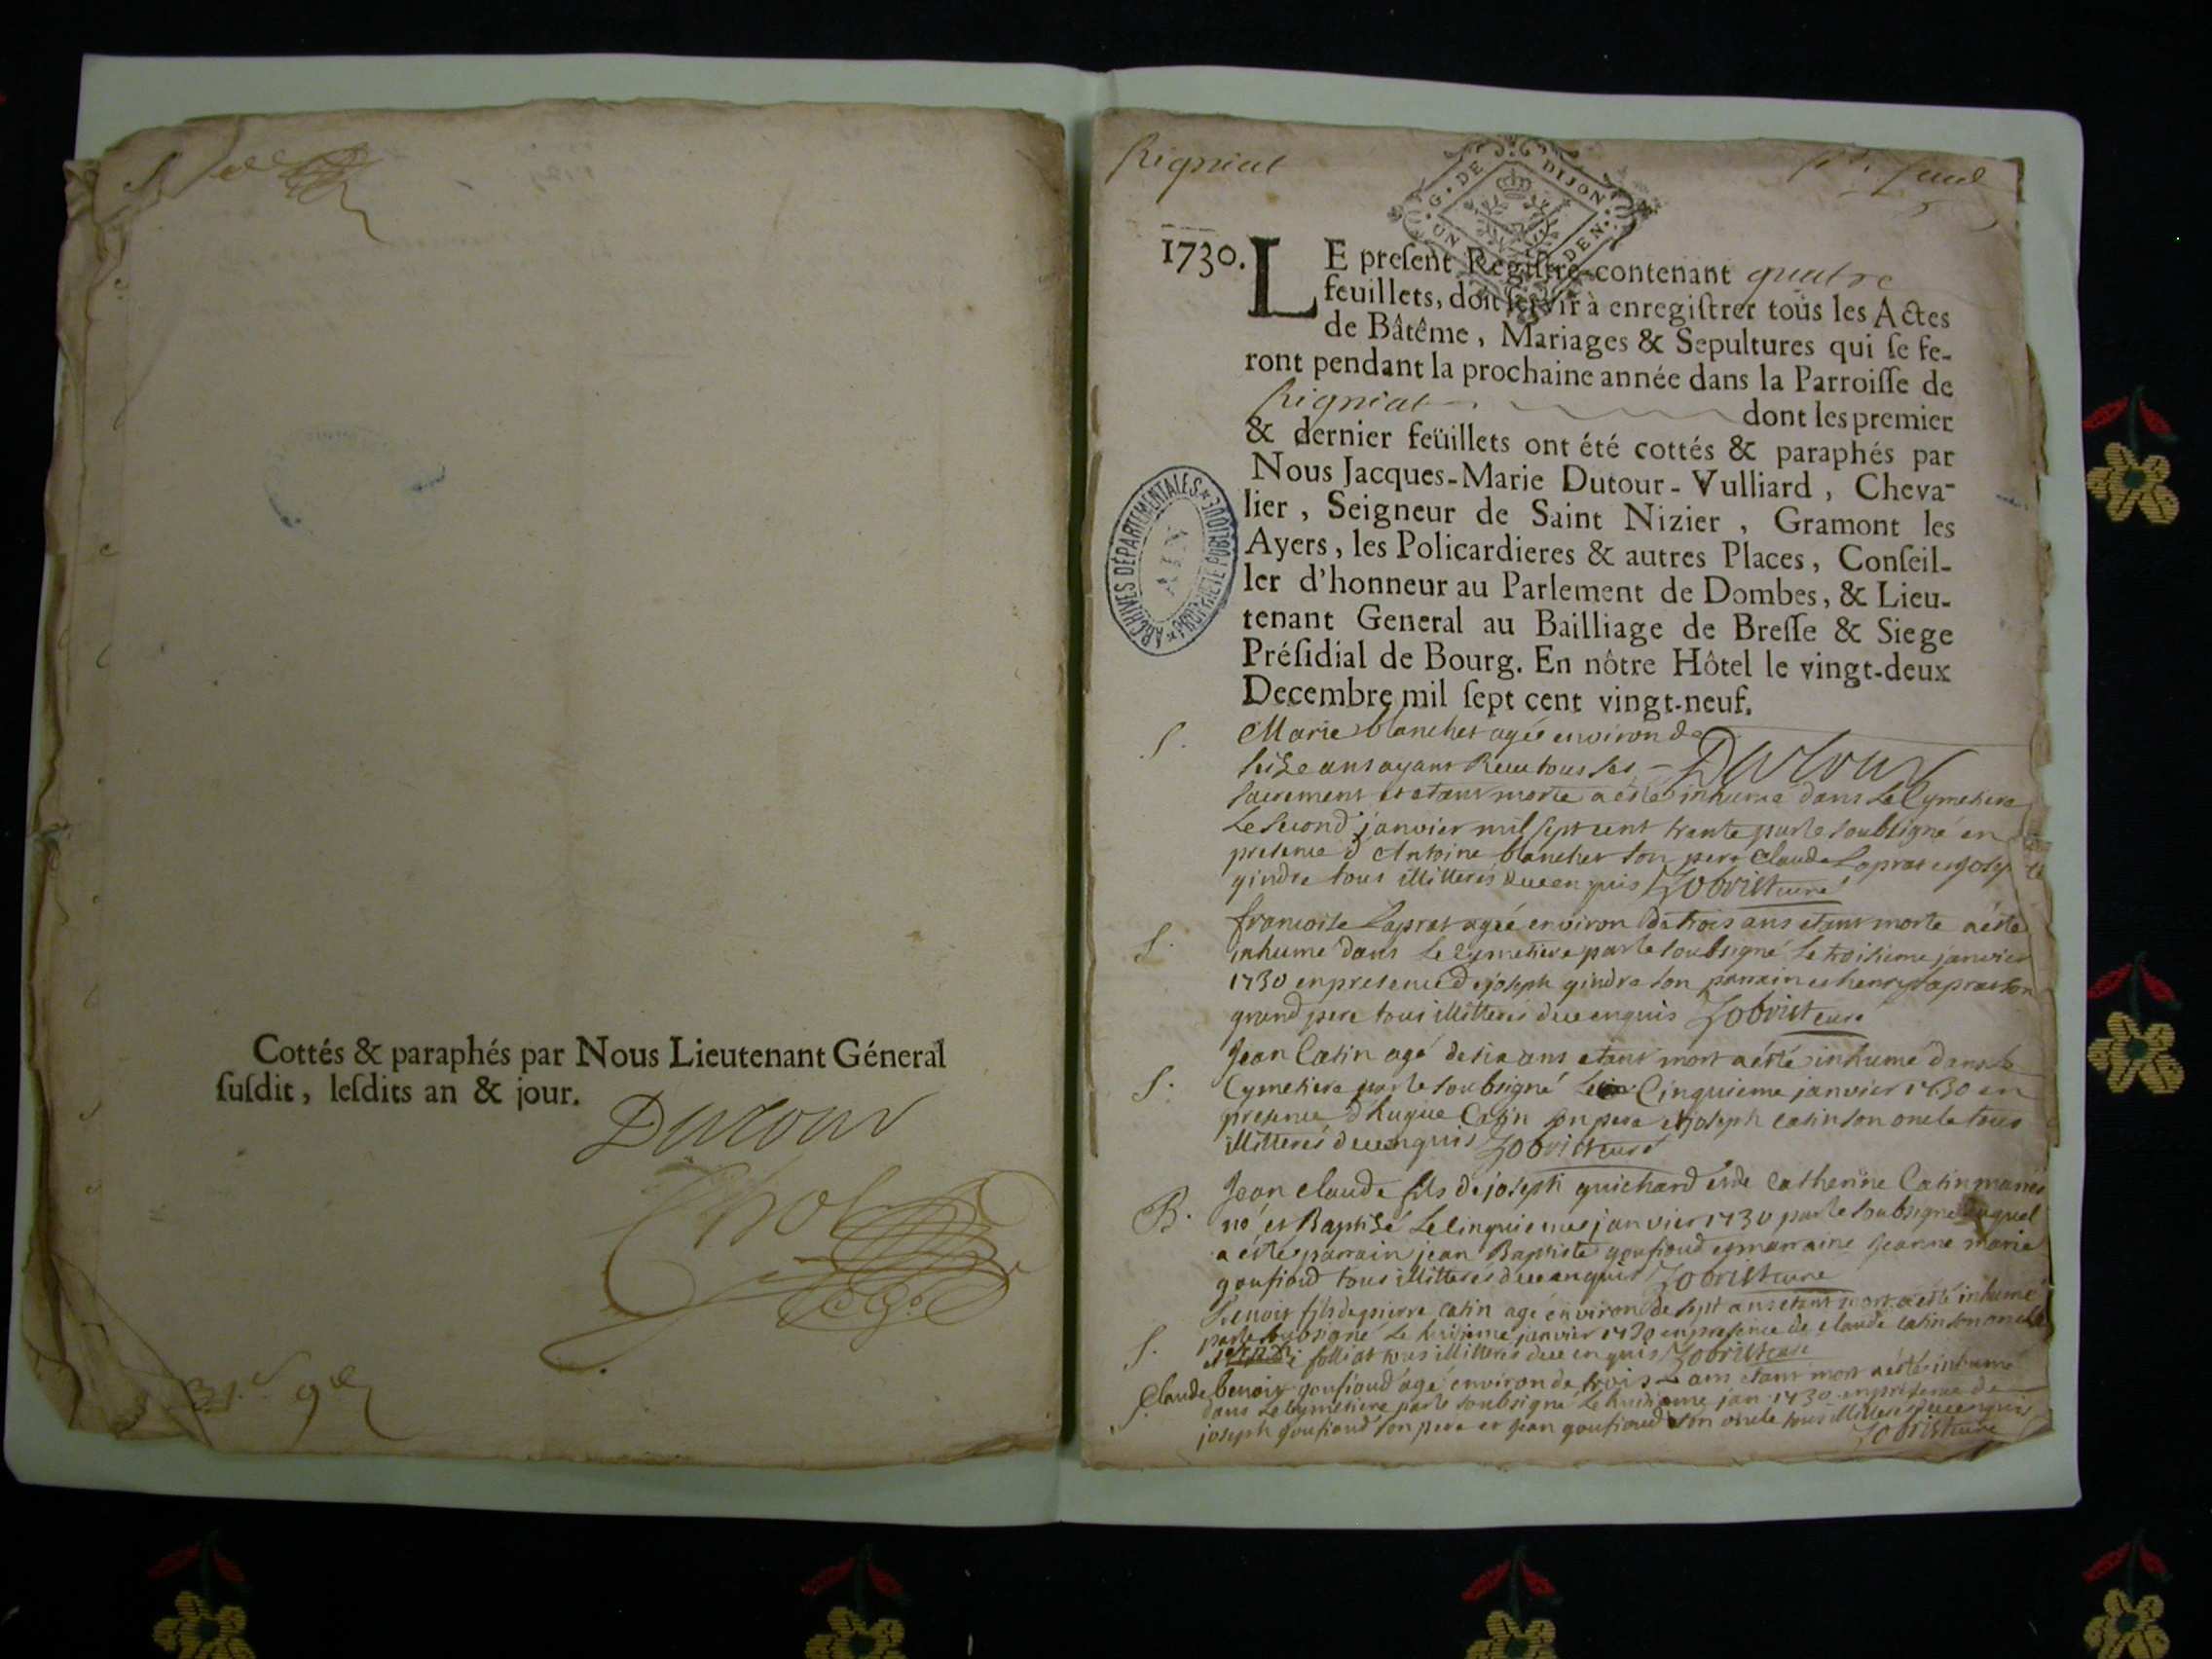 Cottés & paraphés par Nous Lieutenant Géneral
ſuſdit, leſdits an & jour.
Dutour
Rigniat
G. DE DIJON
UN DEN.
1730.
LE preſent Regiſtre contenant quatre
feuillets, doit ſervir à enregiſtrer toüs les Actes
de Bâtême, Mariages & Sepultures qui ſe fe-
ront pendant la prochaine année dans la Parroiſſe de
Rigniat dont les premier
& dernier feüillets ont été cottés & paraphés par
Nous Jacques-Marie Dutour-Vulliard, Cheva-
lier, Seigneur de Saint Nizier, Gramont les
Ayers, les Policardieres & autres Places, Conſeil-
ler d'honneur au Parlement de Dombes, & Lieu-
tenant General au Bailliage de Breſſe & Siege
Préſidial de Bourg. En nôtre Hôtel le vingt-deux
Decembre mil ſept cent vingt-neuf.
ARCHIVES DÉPARTEMENTALES
AIN
S. Marie blanchet agée environ de
seize ans ayant Receu tous ses Dutour
sacrement et etant morte a éste inhume dans Le Cymetiere
Le second janvier mil sept cent trante par le soubsigné en
presence d'Antoine blanchet son pere Claude Laprat et josep
gindre tous illitterés de ce enquis Zobrist curé
S. francoise Laprat agée environ de trois ans etant morte a éste
inhumé dans Le Cymetiere par le soubsigné Le troisieme janvier
1730 en presence de joseph gindre son parrain et henry Laprat son
grand pere tous illitterés de ce enquis Zobrist curé
S. Jean Catin agé de six ans etant mort a ésté inhumé dans Le
Cymetiere par le soubsigné Le Cinquieme janvier 1730 en
presence d'hugue Catin son pere et joseph catin son oncle tous
illitterés de ce enquis Zobrist curé
B. Jean claude fils de joseph guichard et de Catherine Catin mariés
né et Baptisé Le cinquieme janvier 1730 par le soubsigné duquel
a éste parrain jean Baptiste goufioud et marraine jeanne marie
goufioud tous illitterés de ce enquis Zobrist curé
S. Benoit fils de pierre catin agé environ de sept ans etant mort a esté inhumé
par le subsigné Le huitieme janvier 1730 en presence de claude catin son oncle
et folliat tous illitterés de ce enquis Zobrist curé
S. Claude benoit goufioud agé environ de trois ans etant mort a ésté inhumé
dans Le Cymetiere par le soubsigné Le huitieme jan 1730 en presence de
joseph goufioud son pere et jean goufioud son oncle tous illitterés de ce enquis
Zobrist curé